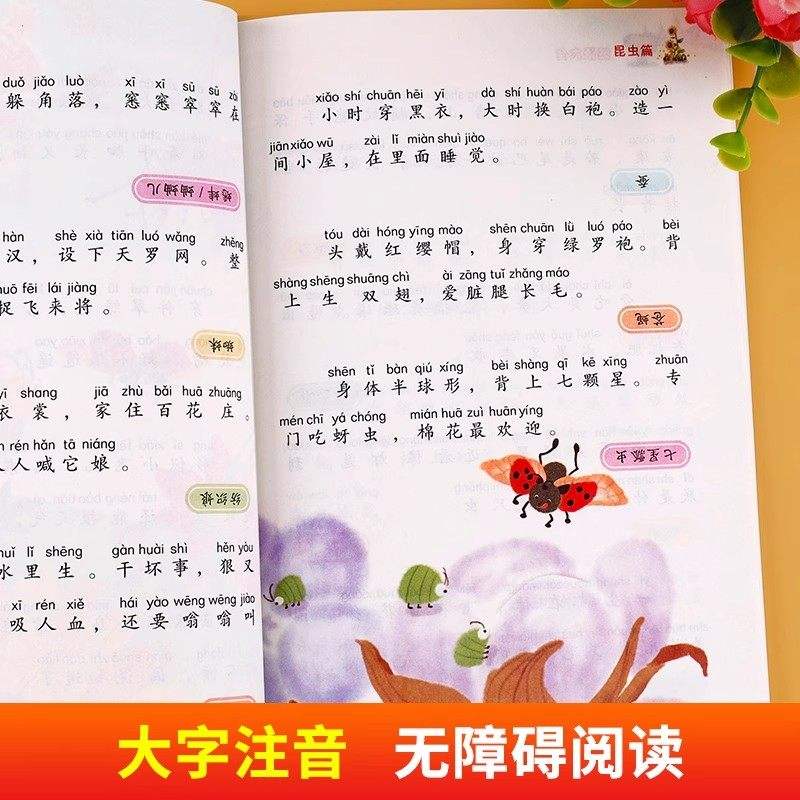 duǒ jiǎo luò xī xī sū sū zài
躲角落，窸窸窣窣在
蟋蟀/蛐蛐儿
hàn shè xià tiān luó wǎng zhěng
汉，设下天罗网。整
uō fēi lái jiàng
捉飞来将。
蜘蛛
yī shang jiā zhù bǎi huā zhuāng
衣裳，家住百花庄。
rén hǎn tā niáng
人人喊它娘。
纺织娘
uǐ lǐ shēng gàn huài shì hěn yòu
水里生。干坏事，狠又
xī rén xiě hái yào wēng wēng jiào
吸人血，还要嗡嗡叫
昆虫篇
xiǎo shí chuān hēi yī dà shí huàn bái páo zào yì
小时穿黑衣，大时换白袍。造一
jiān xiǎo wū zài lǐ miàn shuì jiào
间小屋，在里面睡觉。
蚕
tóu dài hóng yīng mào shēn chuān lǜ luó páo bèi
头戴红缨帽，身穿绿罗袍。背
shàng shēng shuāng chì ài zāng tuǐ zhǎng máo
上生双翅，爱脏腿长毛。
苍蝇
shēn tǐ bàn qiú xíng bèi shàng qī kē xīng zhuān
身体半球形，背上七颗星。专
mén chī yá chóng mián huā zuì huān yíng
门吃蚜虫，棉花最欢迎。
七星瓢虫
大字注音 无障碍阅读